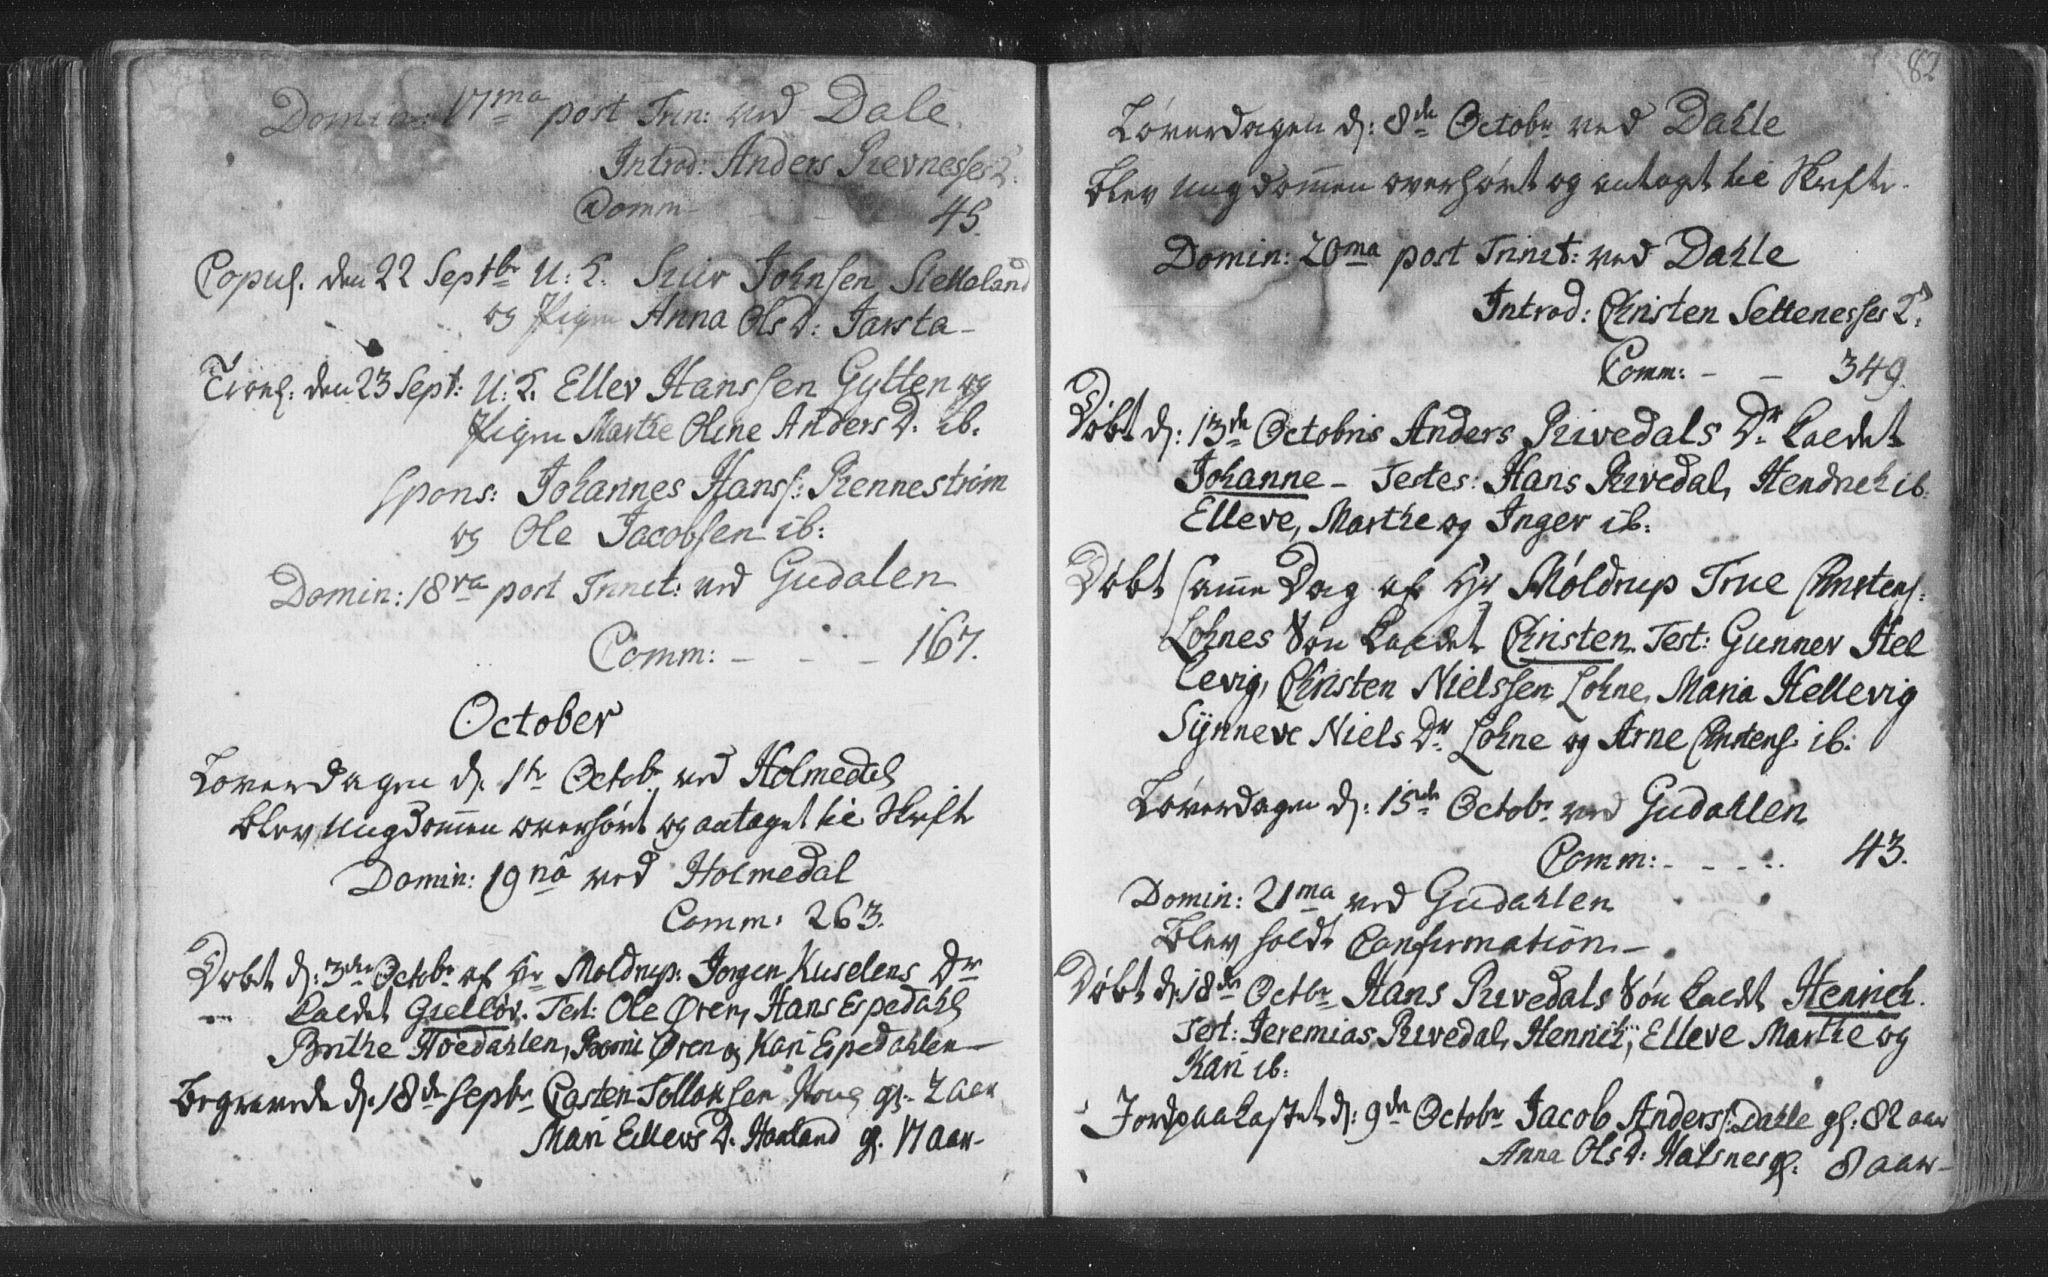 Domin: 17ma post Trin: ved Dale.
Introd: Anders Revnesses Q.
Comm - - - 45.
Copul. den 22 Septbr U: K. Siur Johnsen Sletteland
og Pigen Anna Ols D: Jarsta -
Trol. den 23 Sept: U: K. Ellev Hanssen Gytten og
Pigen Marthe Oline Anders D. ib.
Spons: Johannes Hanss: Rennestrøm
og Ole Jacobsen ib:
Domin: 18va post Trinit: ved Gudalen
Comm: - - - 167.
October
Løverdagen d. 1te Octobr ved Holmedal
blev Ungdommen overhørt og antaget til Skrifte
Domin: 19na ved Holmedal
Comm: 263.
Døbt d: 3die Octobr af Hr Moldrup: Jørgen Kuselens Dr
kaldet Giellør. Test: Ole Øren, Hans Espedahl
Brithe Høedahlen, Øren og Kari Espedahlen -
Begravede d. 18de Sepbr Casten Tollansen Houg gl. 2 aar
Mari Ellevs D. Harland gl. 17 aar -
82
Løverdagen d: 8de Octobr ved Dahle
blev Ungdommen overhørt og antaget til Skrifte.
Domin: 20ma post Trinit: ved Dahle
Introd: Christen Settenesses Q.
Comm: - - 349.
Døbt d: 13de Octobris Anders Rivedals Dr kaldet
Johanne - Testes: Hans Rivedal, Hendrich ib:
Elleve, Marthe og Inger ib:
Døbt samme Dag af Hr Møldrup True Christens:
Lohnes Søn kaldet Christen. Test: Gunner Hel
levig, Christen Nielssen Lohne, Maria Hellevig
Synneve Niels Dr Lohne og Arne Christens ib:
Løverdagen d: 15de Octobr ved Gudahlen
Comm: - - - - 43.
Domin: 21ma ved Gudahlen
blev holdt Confirmation. -
Døbt d. 18de Octbr Hans Rivedals Søn kaldt Henrich.
Test: Jeremias Rivedal, Henrich, Elleve Marthe og
Kari ib:
Jordpaakastet d: 9de Octobr Jacob Anderss: Dahle gl: 82 aar
Anna Ols D: Halsnes gl: 8 aar -